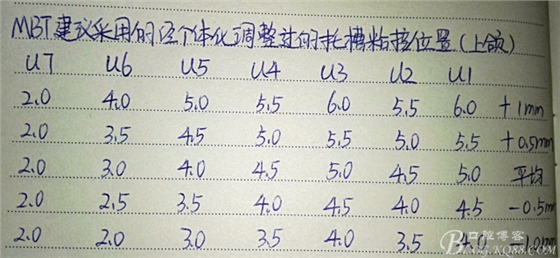 MBT建议采用的经个体化调整过的托槽粘接位置(上颌)
U7 U6 U5 U4 U3 U2 U1
2.0 4.0 5.0 5.5 6.0 5.5 6.0 +1mm
2.0 3.5 4.5 5.0 5.5 5.0 5.5 +0.5mm
2.0 3.0 4.0 4.5 5.0 4.5 5.0 平均
2.0 2.5 3.5 4.0 4.5 4.0 4.5 -0.5mm
2.0 2.0 3.0 3.5 4.0 3.5 4.0 -1.0mm
口腔博客
BLOG.KQ88.COM